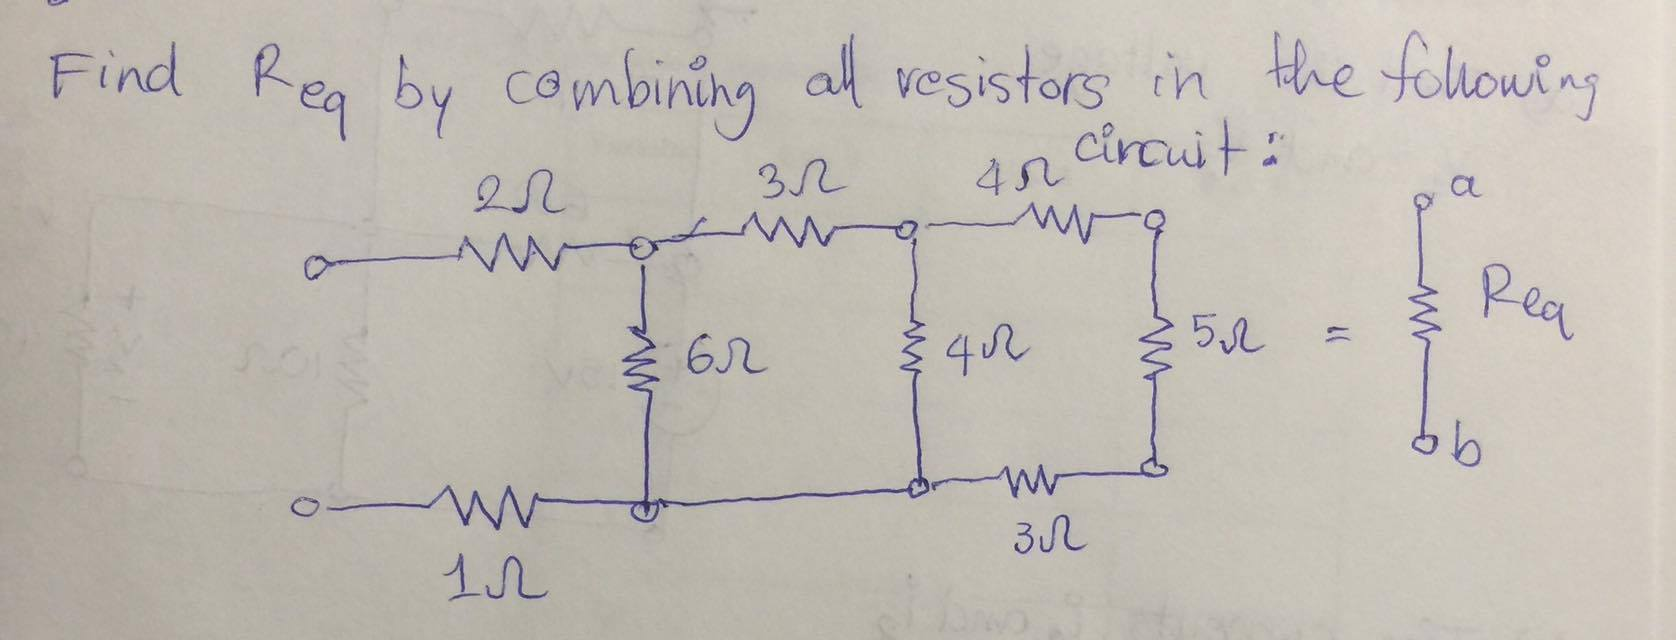 Find Req by combining all resistors in the following
circuit:
2Ω
3Ω
4Ω
a
6Ω
4Ω
5Ω
=
Req
b
1Ω
3Ω